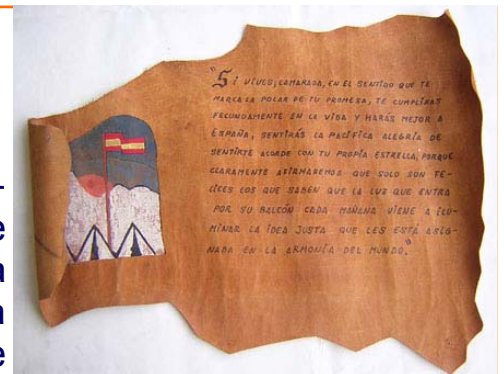 "Si vives, camarada, en el sentido que te
marca la polar de tu promesa, te cumplirás
fecundamente en la vida y harás mejor a
España, sentirás la pacífica alegría de
sentirte acorde con tu propia estrella, porque
claramente afirmaremos que solo son fe-
lices los que saben que la luz que entra
por su balcón cada mañana viene a ilu-
minar la idea justa que les está asig-
nada en la armonía del mundo."
e
a
a
e